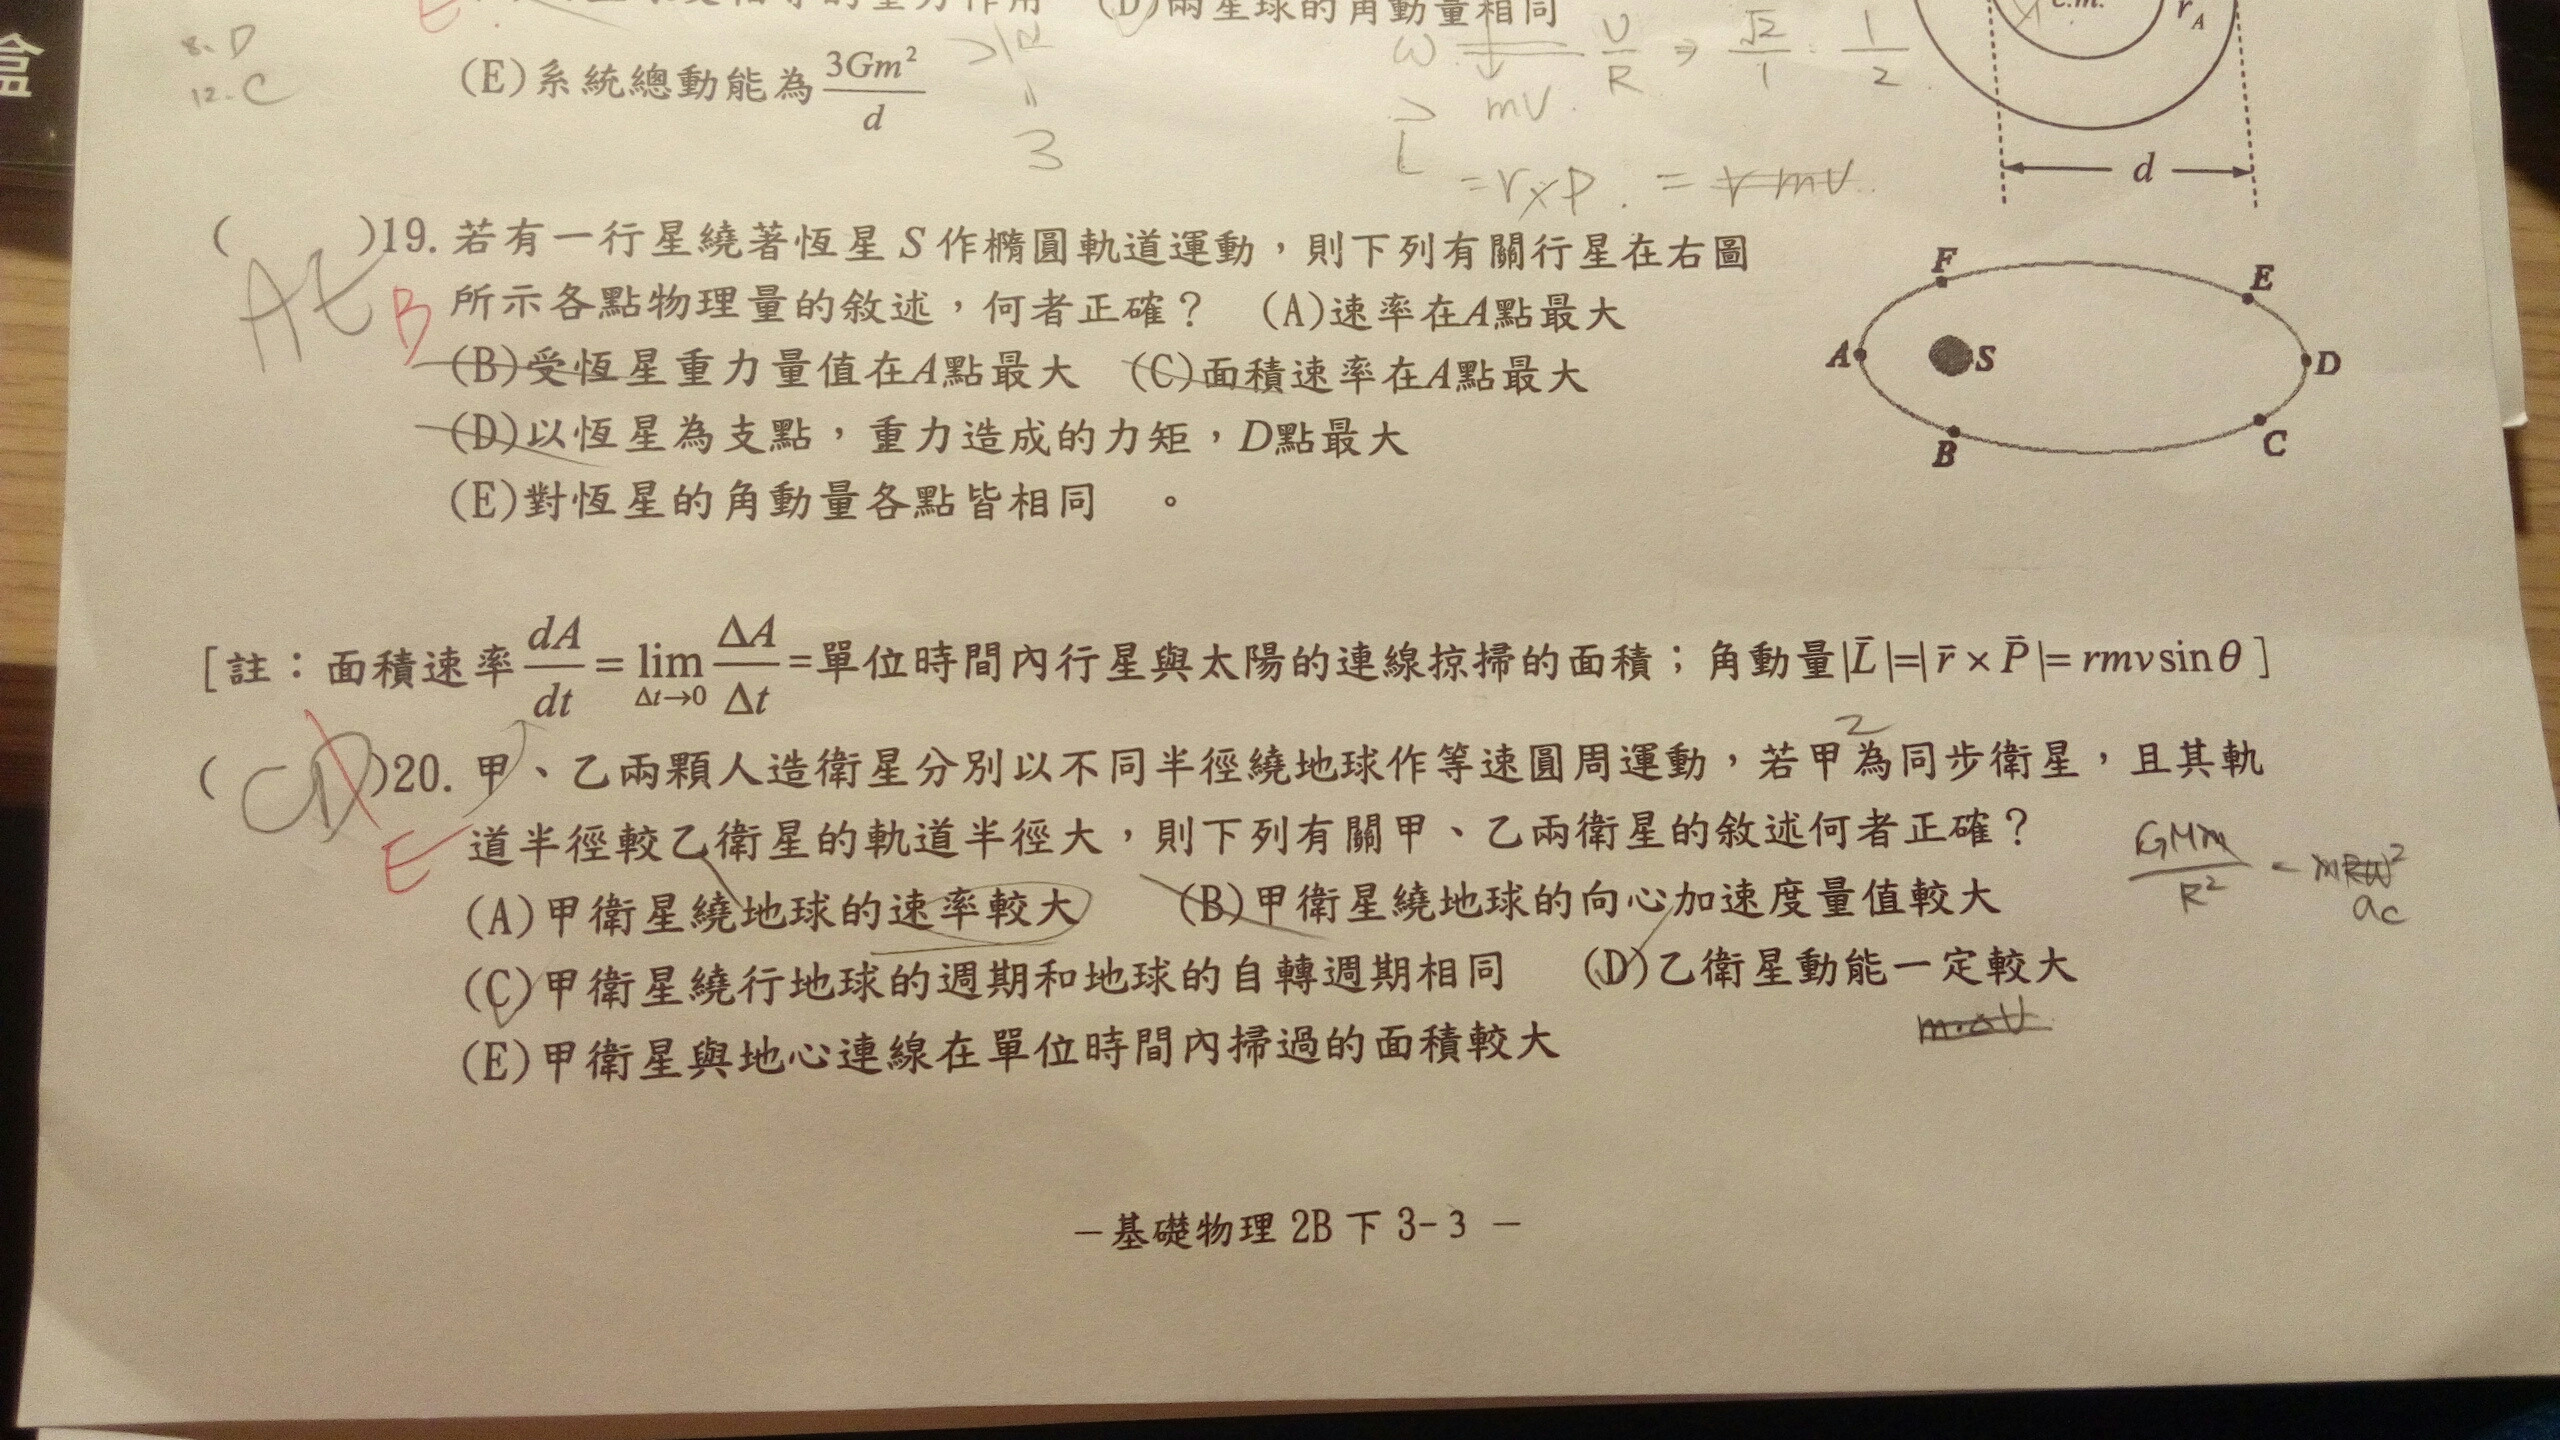 盒
8. D
12. C
(D)兩星球的角動量相同
(E)系統總動能為 3Gm²/d
3
ω U/R ⇒ √2/1 : 1/2
mv
L = r×p = r mv
c.m.
r_A
d
( AE )19. 若有一行星繞著恆星 S 作橢圓軌道運動，則下列有關行星在右圖
B 所示各點物理量的敘述，何者正確？ (A)速率在A點最大
(B)受恆星重力量值在A點最大 (C)面積速率在A點最大
(D)以恆星為支點，重力造成的力矩，D點最大
(E)對恆星的角動量各點皆相同 。
F
E
A
S
D
B
C
[註：面積速率 dA/dt = lim Δt→0 ΔA/Δt =單位時間內行星與太陽的連線掠掃的面積；角動量|L̄|=|r̄ × P̄|= rmv sin θ ]
( CD )20. 甲、乙兩顆人造衛星分別以不同半徑繞地球作等速圓周運動，若甲為同步衛星，且其軌
E 道半徑較乙衛星的軌道半徑大，則下列有關甲、乙兩衛星的敘述何者正確？
GMm/R² = mRω²
ac
(A)甲衛星繞地球的速率較大 (B)甲衛星繞地球的向心加速度量值較大
(C)甲衛星繞行地球的週期和地球的自轉週期相同 (D)乙衛星動能一定較大
(E)甲衛星與地心連線在單位時間內掃過的面積較大
－基礎物理 2B 下 3-3 －